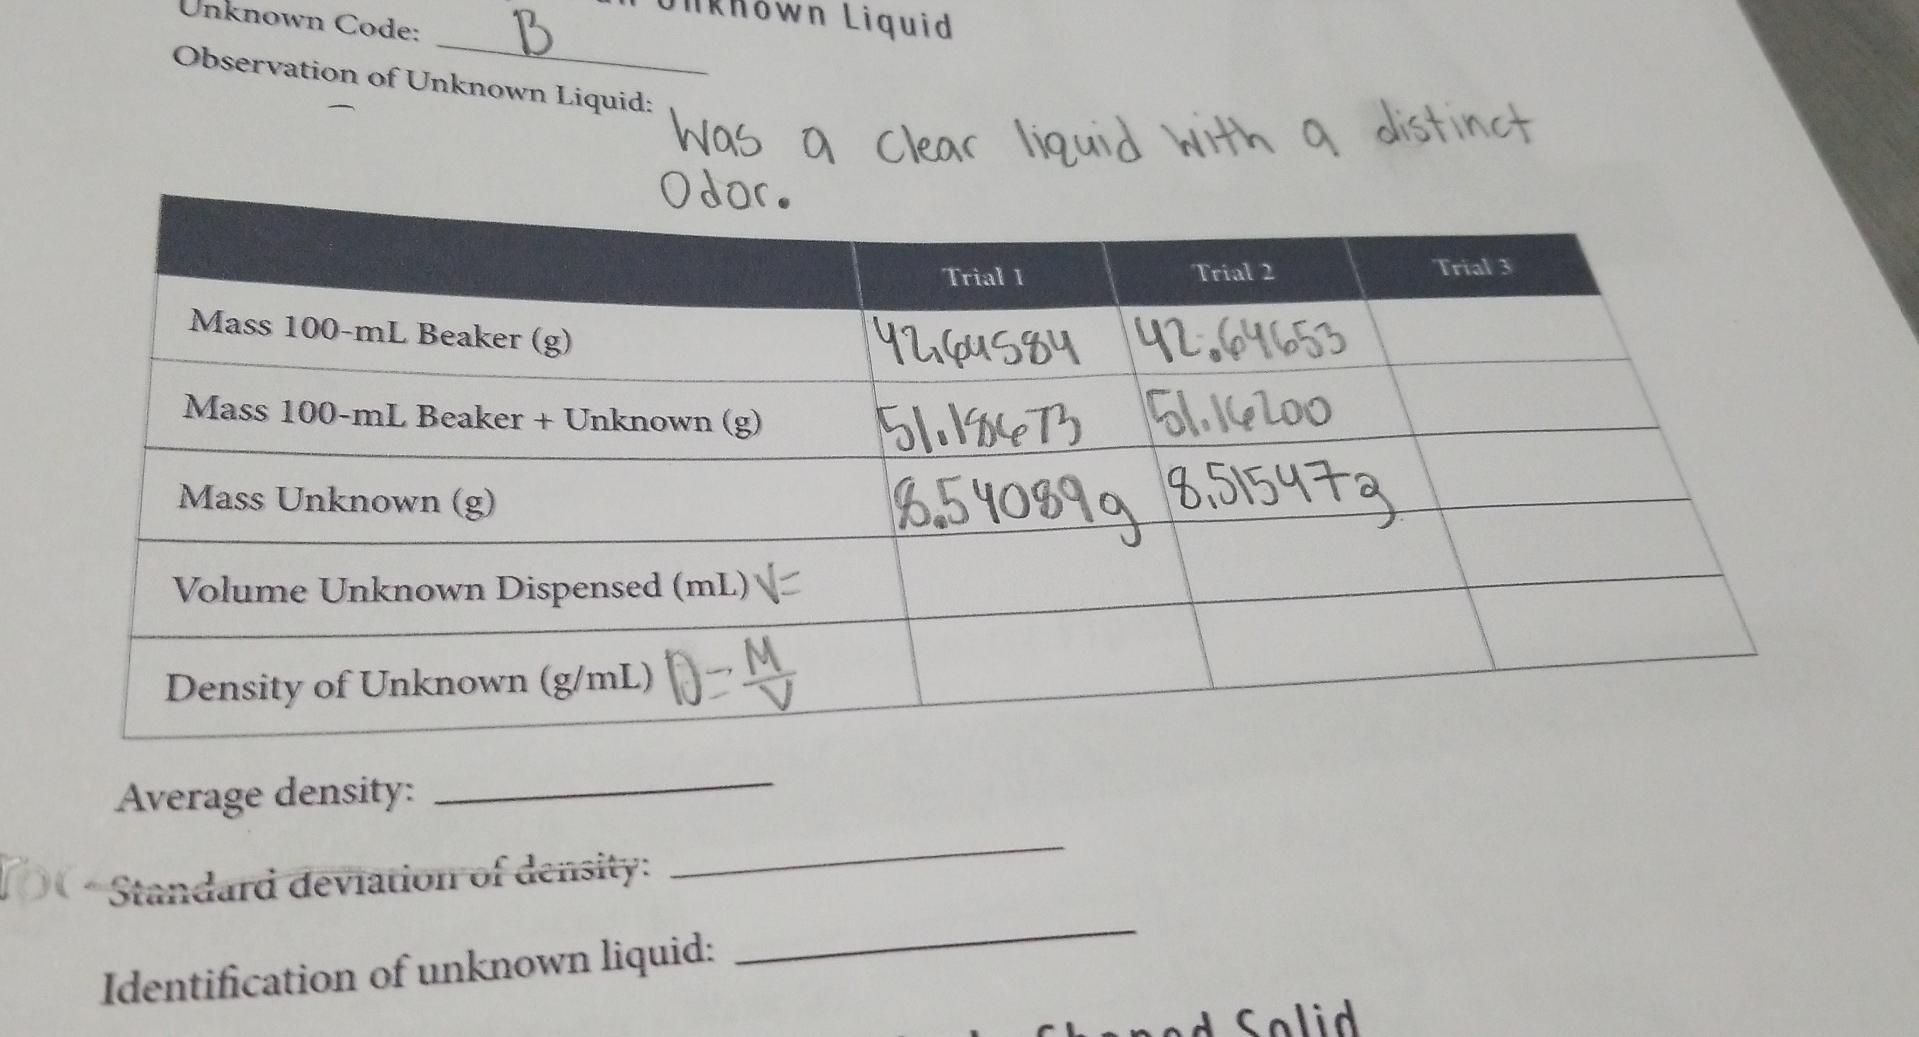 Unknown Liquid
Unknown Code: B
Observation of Unknown Liquid: Was a clear liquid with a distinct
Odor.
Trial 1 Trial 2 Trial 3
Mass 100-mL Beaker (g) 42.64584 42.64653
Mass 100-mL Beaker + Unknown (g) 51.18673 51.16200
Mass Unknown (g) 8.54089g 8.51547g
Volume Unknown Dispensed (mL) V=
Density of Unknown (g/mL) D=M/V
Average density:
Standard deviation of density:
Identification of unknown liquid:
Shaped Solid